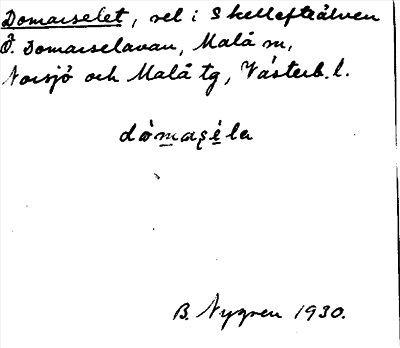 Domarselet, sel i Skellefteälven
Ö. Domarselavan, Malå sn,
Norsjö och Malå tg, Västerb. l.
dómaṣéle
B. Nygren 1930.